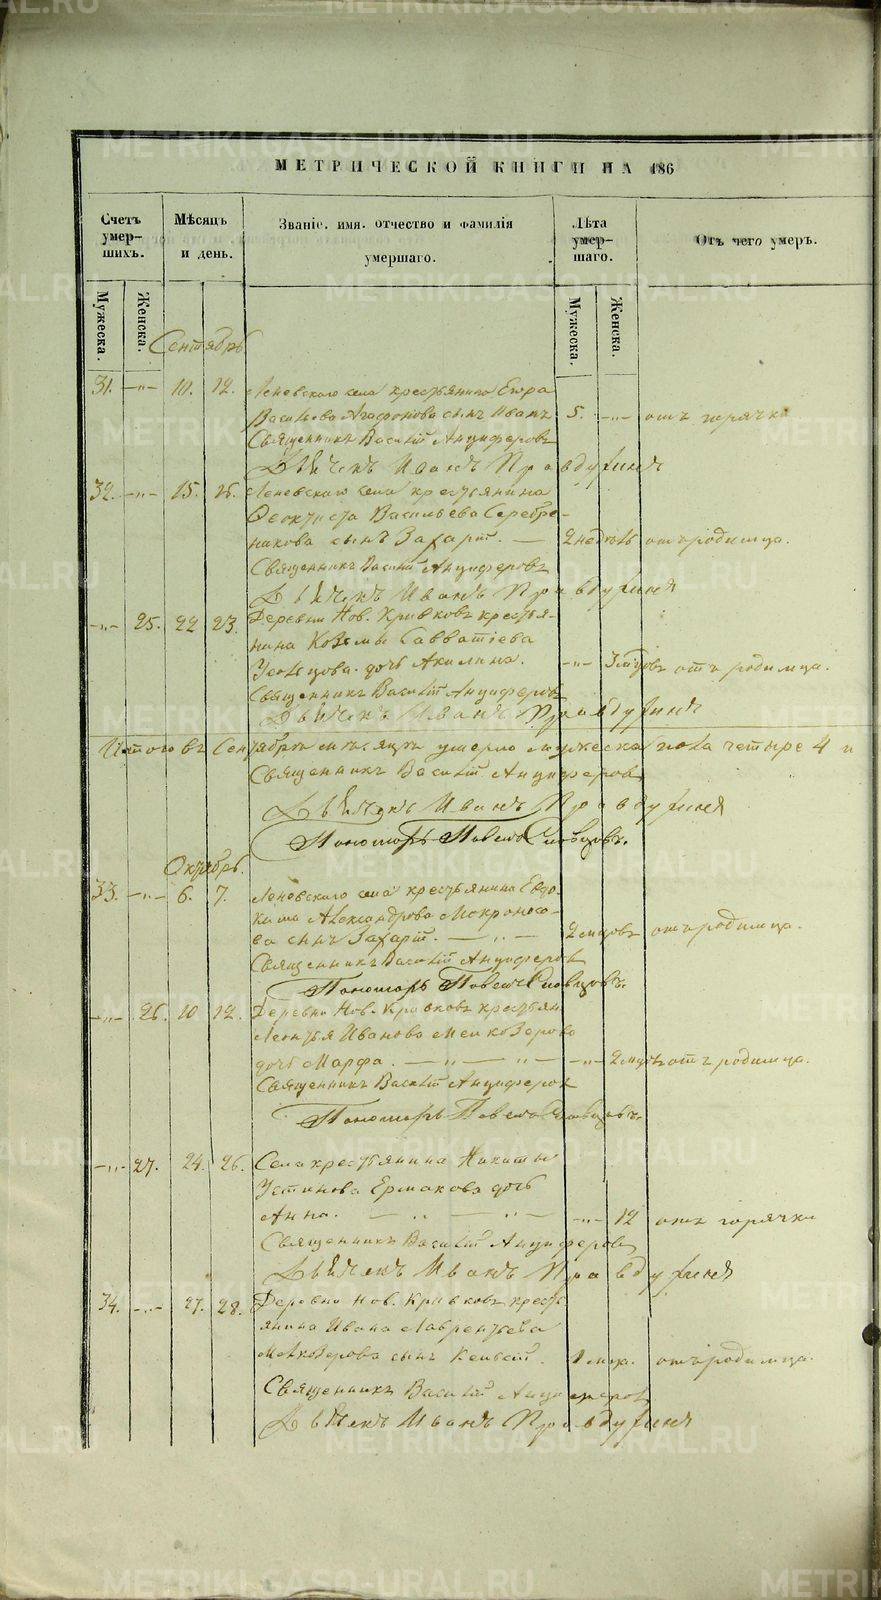 МЕТРИЧЕСКОЙ КНИГИ НА 186
Счетъ умер-шихъ.
Мѣсяцъ и день.
Званіе, имя, отчество и фамилія умершаго.
Лѣта умер-шаго.
Отъ чего умеръ.
Мужеска. Женска.
Мужеска. Женска.
Сентябрь
31. -„- 10. 12. Леневскаго села крестьянина Егора
Васильева Агафонова сынъ Иванъ 5. -„- отъ горячки
Священникъ Василій Анциферовъ
Дьячекъ Иванъ
32. -„- 15. 16. Леневскаго села крестьянина
Феоктиста Васильева Серебре-
никова сынъ Захарій. — 2 недѣль отъ родимца.
Священникъ Василій Анциферовъ
Дьячекъ Иванъ
-„- 25. 22 23. Деревни Нов. Кривковъ крестья-
нина Козьмы Савватіева
дочь Акилина. -„- 3 мѣсцовъ отъ родимца.
Священникъ Василій Анциферовъ
Дьячекъ Иванъ
Итого въ Сентябрѣ мѣсяцѣ умерло мужеска пола четыре 4 и
Священникъ Василій Анциферовъ
Дьячекъ Иванъ
Пономарь Павелъ Словцовъ.
Октябрь.
33. -„- 6. 7. Леневскаго села крестьянина Евдо-
кима Александрова Мокроносо-
ва сынъ Захарій. — „ — 2 мѣсцовъ отъ родимца.
Священникъ Василій Анциферовъ
Пономарь Павелъ Словцовъ.
-„- 26. 10 12. Деревни Нов. Кривковъ крестьян
Леонтья Иванова Мелкозерова
дочь Марфа. — „ — „ — -„- 2 мѣсц. отъ родимца.
Священникъ Василій Анциферовъ
Пономарь Павелъ Словцовъ.
-„- 27. 24. 26. Села крестьянина Никиты
Устинова Ермакова дочь
Анна. — „ — „ — -„- 12 отъ горячки
Священникъ Василій Анциферовъ
Дьячекъ Иванъ
34. -„- 27. 28. Деревни Нов. Кривковъ кресть-
янина Ивана Лаврентьева
Мелкозерова сынъ 1 мсца. отъ родимца.
Священникъ Василій Анциферовъ
Дьячекъ Иванъ
METRIKI.GASO-URAL.RU